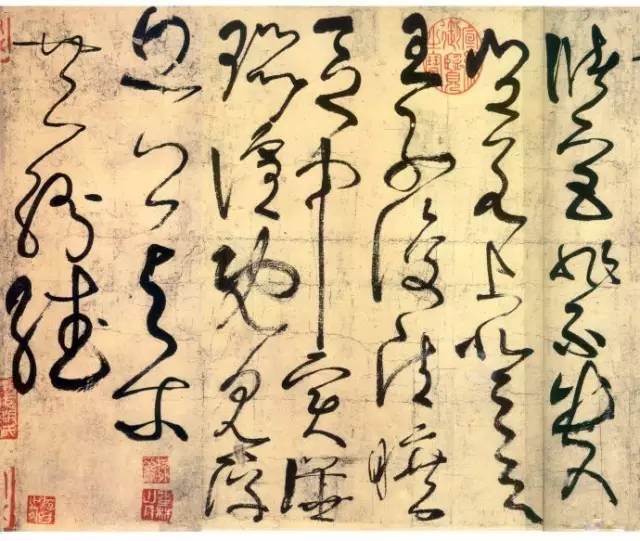 儲宫非不貴
豈若上登天
王子復清曠
區中實譁
囂喧既見浮
丘公與尔
共紛繙